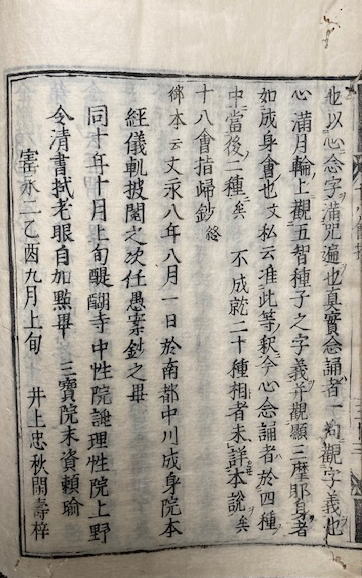 也以心念字滿咒遍也真實念誦者一向觀字義也
心滿月輪上觀五智種子之字義并觀顯三摩耶身者
如成身會也文私云准此等釋今心念誦者於四種
中當後二種矣　不成就二十種相者未詳本說矣
十八會指歸鈔終
御本云文永八年八月一日於南都中川成身院本
經儀軌披閱之次任愚案鈔之畢
同十年十月上旬醍醐寺中性院誂理性院上野
令清書拭老眼自加點畢　三寶院末資賴瑜
寳永二乙酉九月上旬　井上忠秋開壽梓